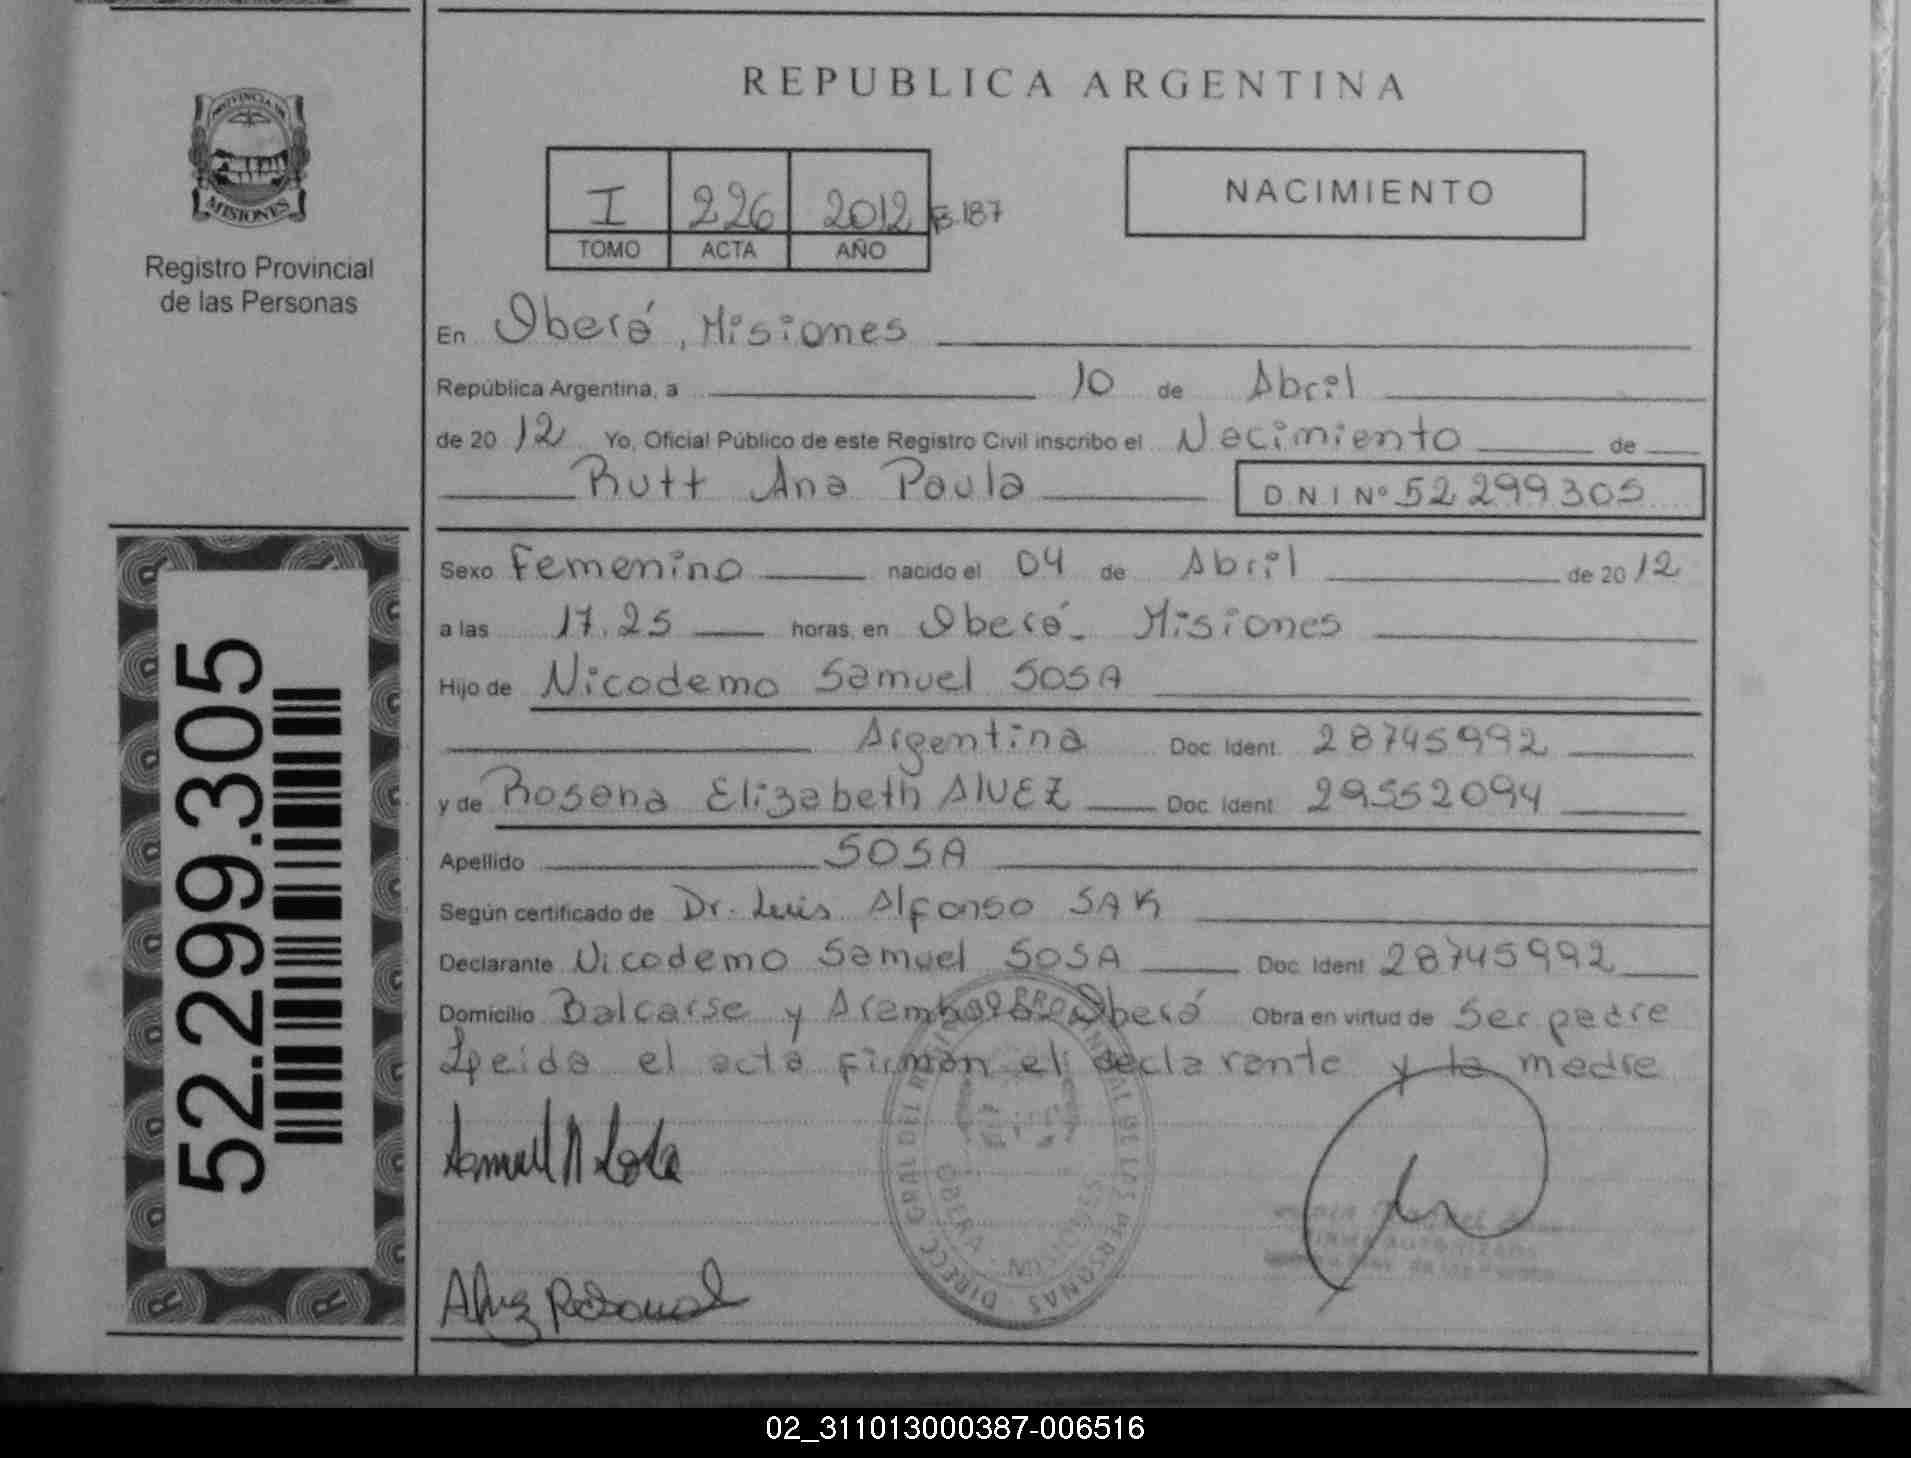 REPUBLICA ARGENTINA
PROVINCIA DE
MISIONES
Registro Provincial
de las Personas
I 226 2012 F.187
TOMO ACTA AÑO
NACIMIENTO
En Oberá, Misiones
República Argentina, a 10 de Abril
de 2012 Yo, Oficial Público de este Registro Civil inscribo el Nacimiento de
Rutt Ana Paula D N I Nº 52 299.305
Sexo Femenino nacido el 04 de Abril de 2012
a las 17.25 horas, en Oberá - Misiones
Hijo de Nicodemo Samuel SOSA
Argentina Doc. Ident. 28745992
y de Rosana Elizabeth AlVEZ Doc. Ident. 29552094
Apellido SOSA
Según certificado de Dr. Luis Alfonso SAK
Declarante Nicodemo Samuel SOSA Doc. Ident 28745992
Domicilio Balcarse y Oberá Obra en virtud de Ser padre
Leida el acta firman el declarante y la madre
DIRECC. GRAL DEL REGISTRO PROVINCIAL DE LAS PERSONAS
OBERA - MISIONES
FIRMA AUTORIZADA
52.299.305
02_311013000387-006516